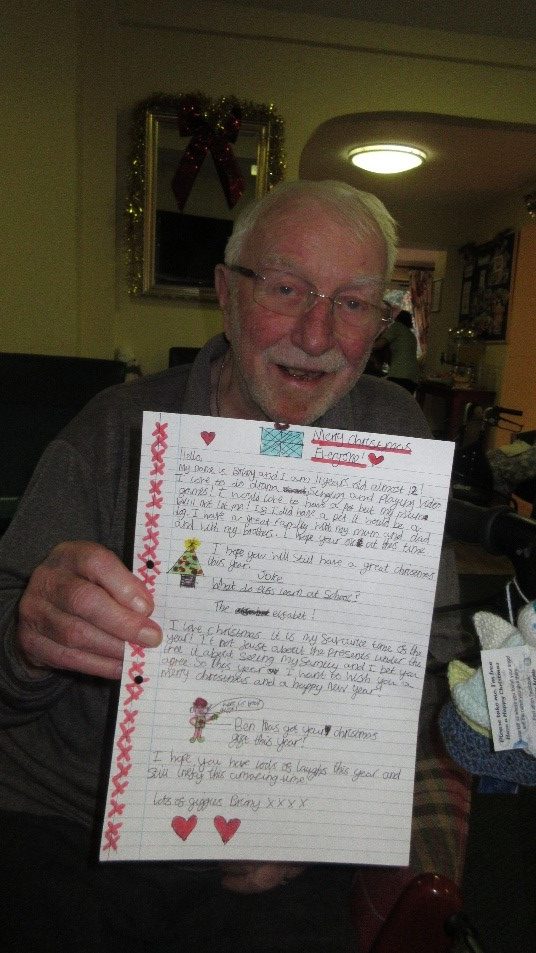 Merry Christmas
Everyone!
Hello,
My name is Briony and I am 11 years old almost 12!
I love to do drama, Singing and Playing Video
games! I would love to have a pet but my mum
Will not let me! If I did have a pet it would be a
I have a great family with my mum and dad
and with my brothers. I hope your ok at this time
I hope you will still have a great christmas
this year.
Joke
What do elfs learn at School?
The elfabet!
I love christmas it is my favourite time of the
year! It not Just about the presents under the
tree it about seeing my family and I bet you
agree. So this year I want to wish you a
merry christmas and a happy New year!
Ben Has got your christmas
gift this year!
I hope you have lods of laughs this year and
still enjoy this amazing time!
Lots of giggles Briony x x x x
Please take me, I'm free
Have a Happy Christmas